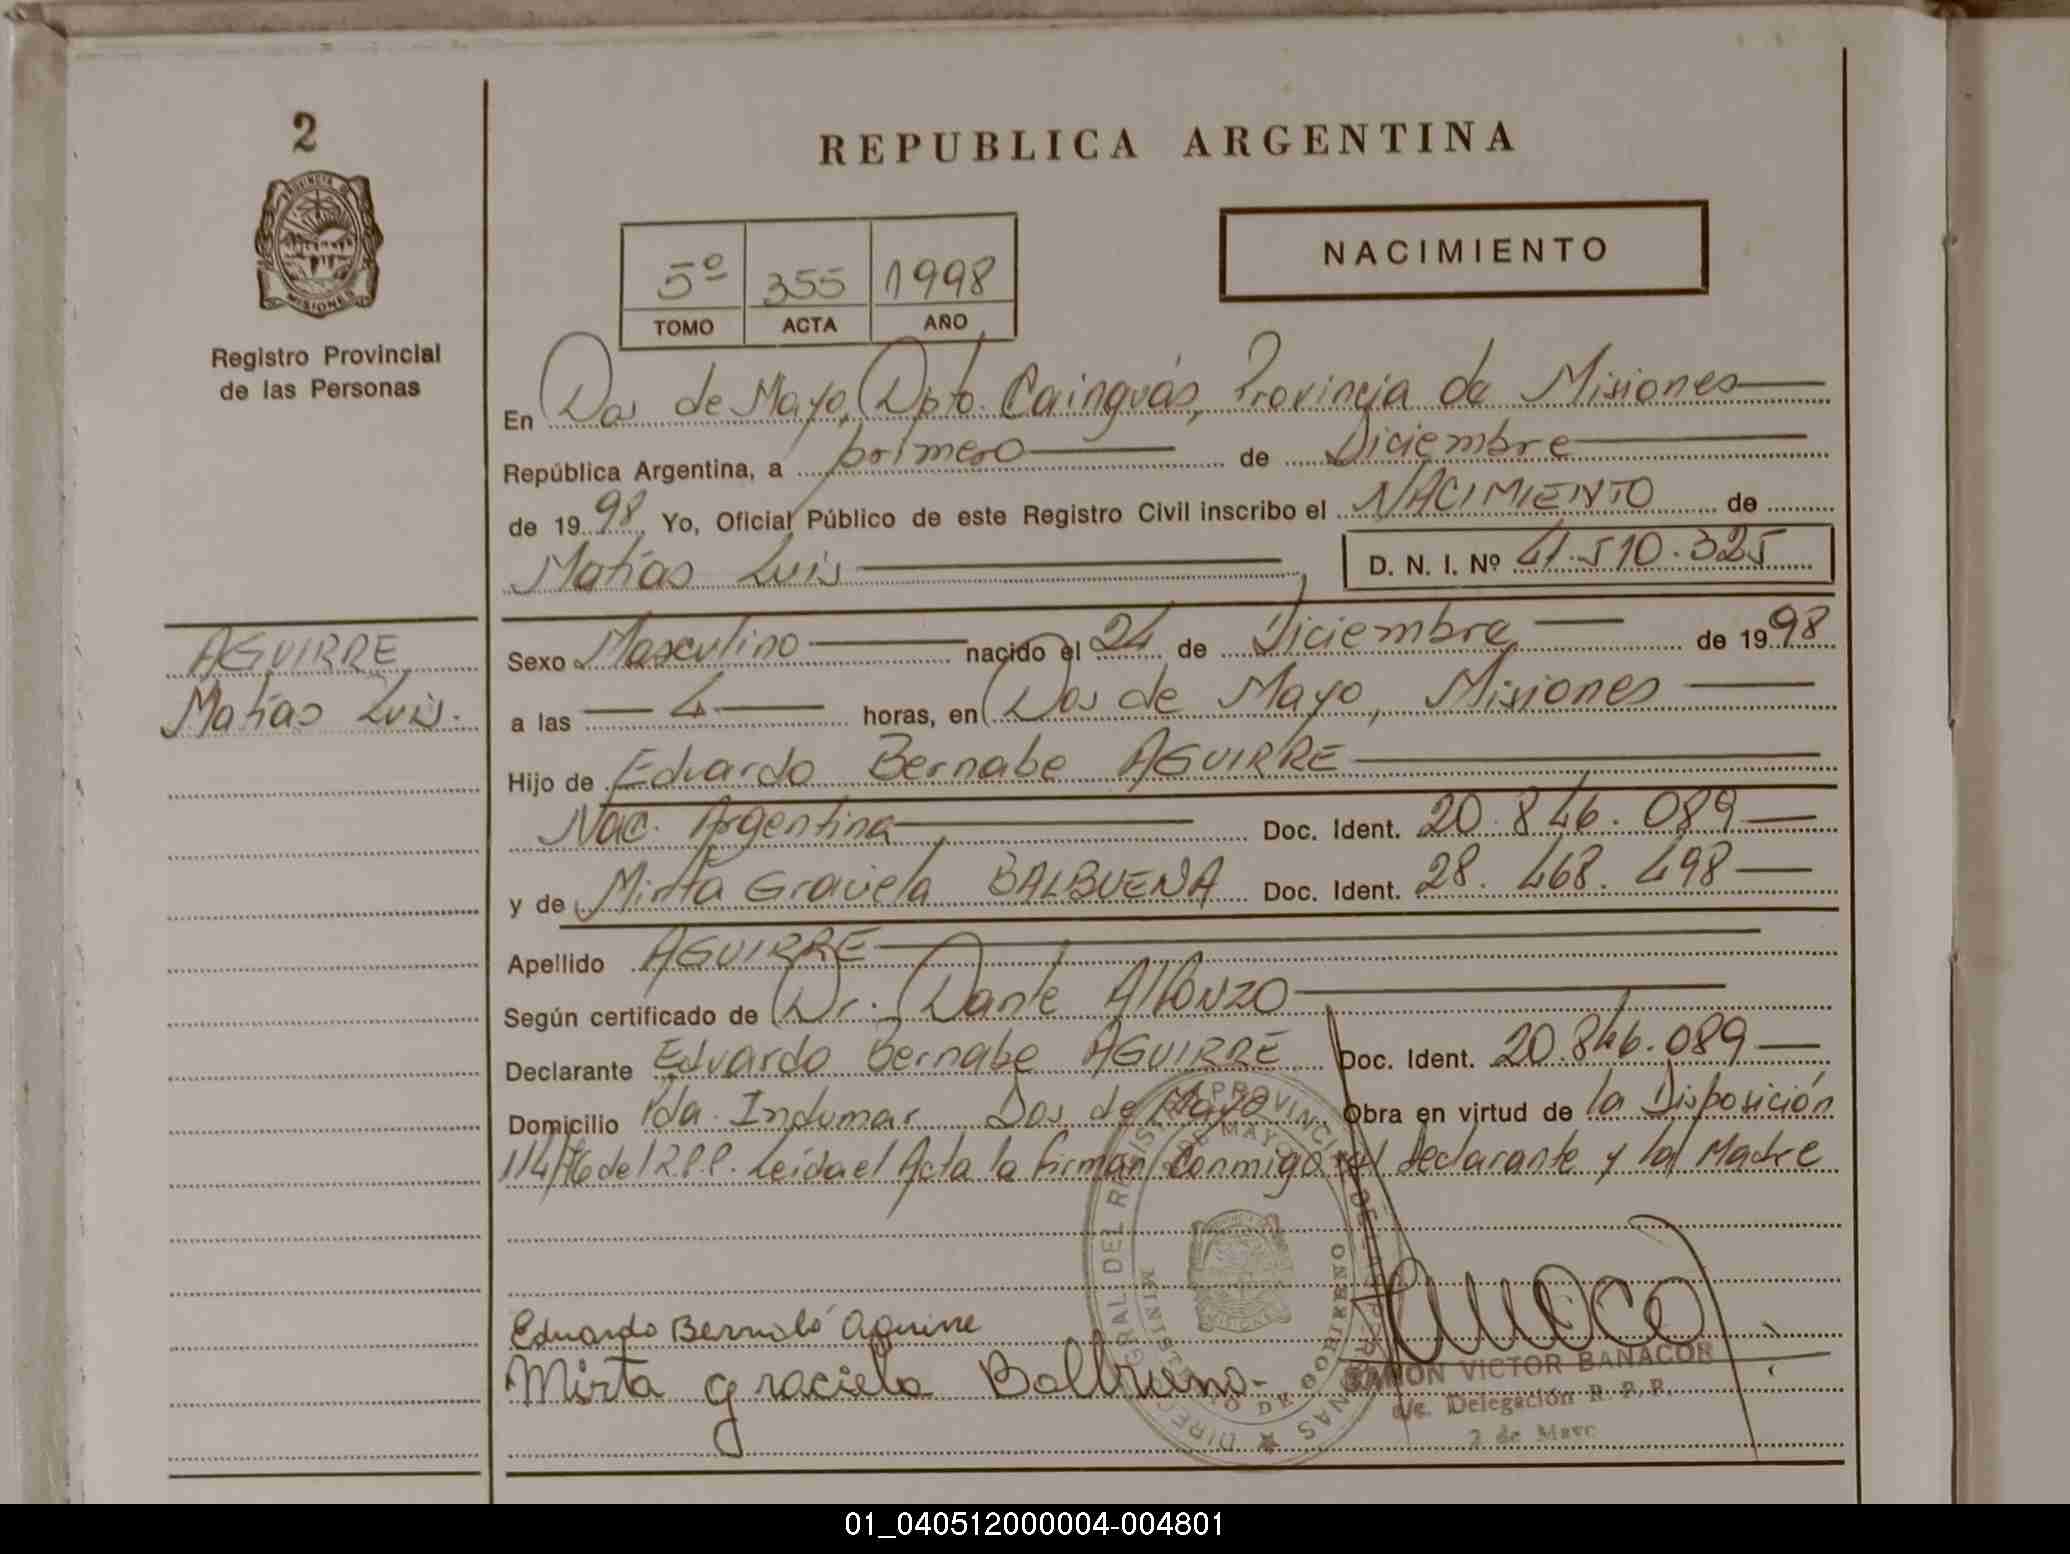 2
PROVINCIA DE
MISIONES
Registro Provincial
de las Personas
AGUIRRE
Matías Luis.
REPUBLICA ARGENTINA
NACIMIENTO
5º 355 1998
TOMO ACTA AÑO
En Dos de Mayo, Dpto. Cainguás, Provincia de Misiones
República Argentina, a primero de Diciembre
de 1998 Yo, Oficial Público de este Registro Civil inscribo el NACIMIENTO de
Matías Luis D. N. I. Nº 41.510.325
Sexo Masculino nacido el 24 de Diciembre de 1998
a las 4 horas, en Dos de Mayo, Misiones
Hijo de Eduardo Bernabe AGUIRRE
Nac. Argentina Doc. Ident. 20.846.089
y de Mirta Graciela BALBUENA Doc. Ident. 28.468.498
Apellido AGUIRRE
Según certificado de Dr. Dante AlfONZO
Declarante Eduardo Bernabe AGUIRRE Doc. Ident. 20.846.089
Domicilio Pda. Indumar Dos de Mayo Obra en virtud de la Disposición
114/76 del R.P.P. Leída el Acta la firman conmigo el declarante y la Madre
Eduardo Bernabé Aguirre
Mirta Graciela Balbuena
RAMON VICTOR BANACOR
a/c. Delegación R. P. P.
2 de Mayo
01_040512000004-004801